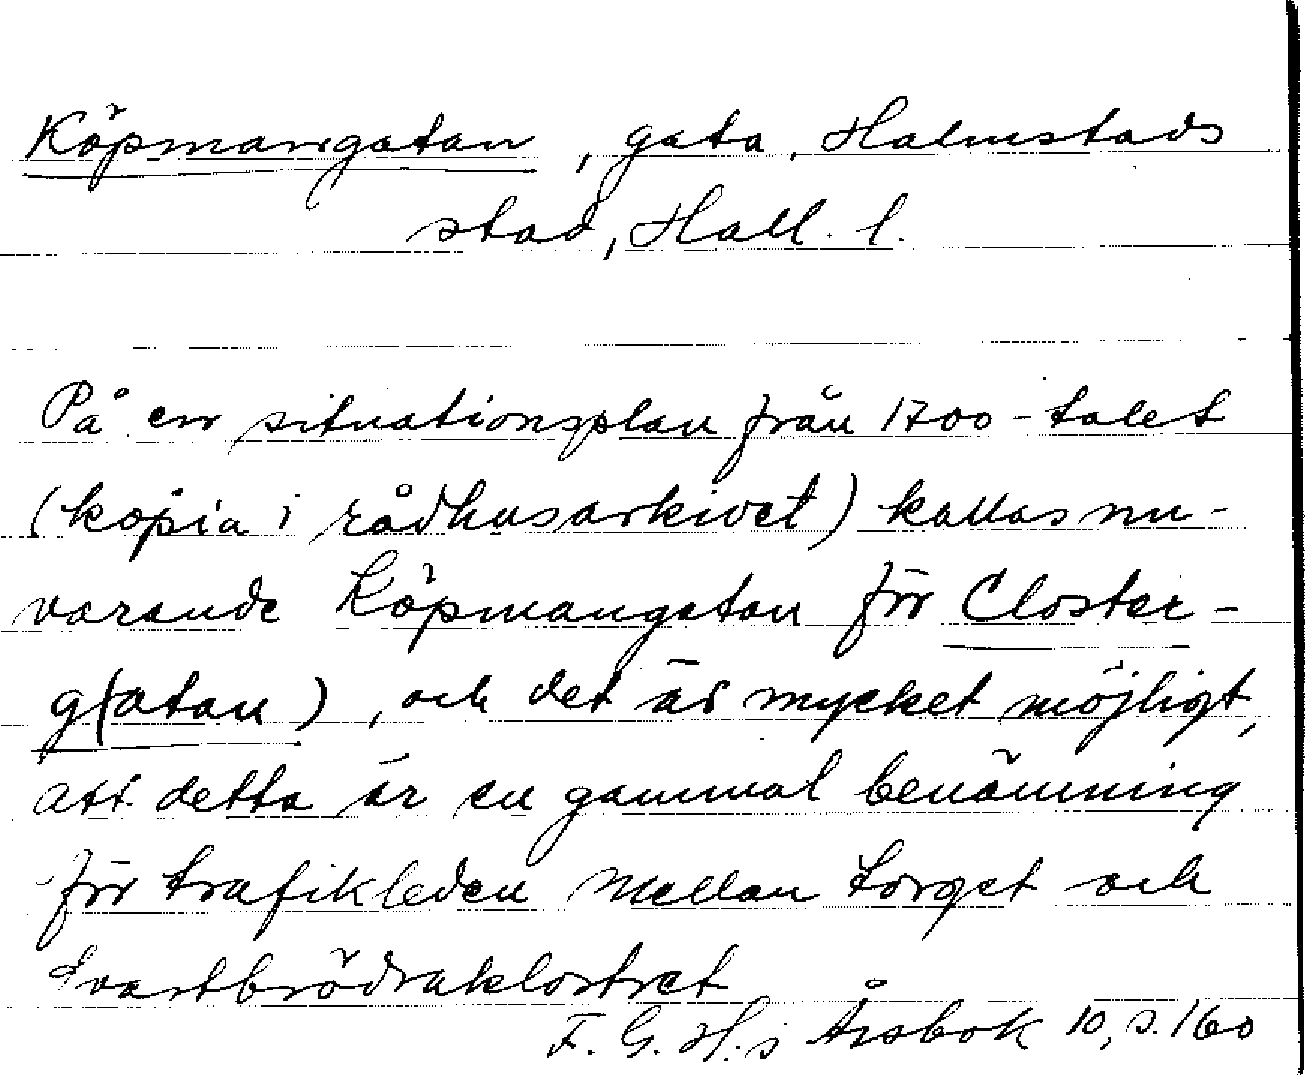 Köpmangatan, gata, Halmstads
stad, Hall. l.
På en situationsplan från 1700-talet
(kopia i rådhusarkivet) kallas nu-
varande Köpmangatan för Closter-
g(atan), och det är mycket möjligt,
att detta är en gammal benämning
för trafikleden mellan torget och
Svartbrödraklostret
F. G. H:s Årsbok 10, s. 160